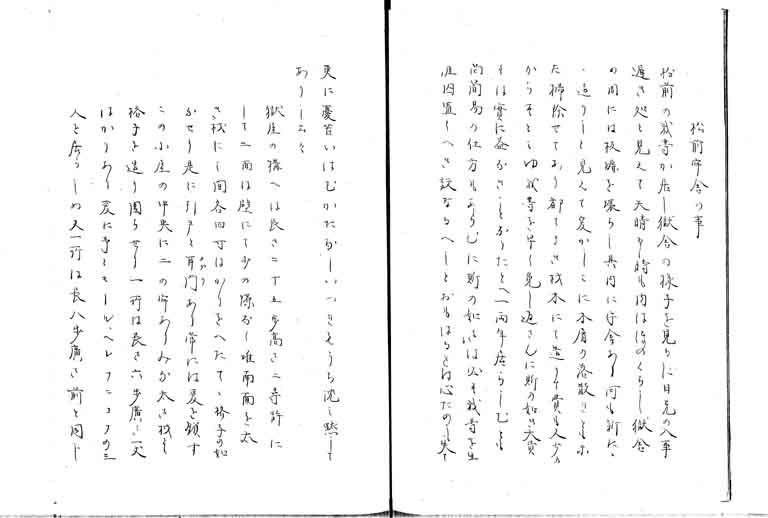 松前牢舎の事
松前の我等が居し獄舎の様子を見るに日光の入事
遅き処と見えて天晴し時も内はほのくらし獄舎
の周には板塀を環らし其内に牢舎あり何も新に
造りしと見えて爰かしこに木屑の落散りしもま
た掃除せてあり都てよき材木にて造り費も又少な
からすそもそも我等を早く返さんに斯の如き大費
をは實に益なきことなりたとへ一両年居らしむとも
尚簡易の仕方もあらむに斯の如きは必す我等を生
涯囚置くへき設なるへしとおもはるるは心たのしまて
更に憂苦いはむかたなしいつれもそうち沈し黙して
ありし云々
獄屋の様へは長さ二丁五歩高さ二尋許に
して二面は壁にて少の隙なく唯両面を太
き材にて間各四寸はかりをへたてて格子の如
なせり是に引戸と耳門あり常には是を鎖す
この小屋の中央に二の牢ありみな太き材を
格子を造り周らせり一所は長さ六歩廣さ一丈
はかりあり爰に予とモール、ヘレフニコフの三
人を居らしめ又一所は長八歩廣さ前と同し